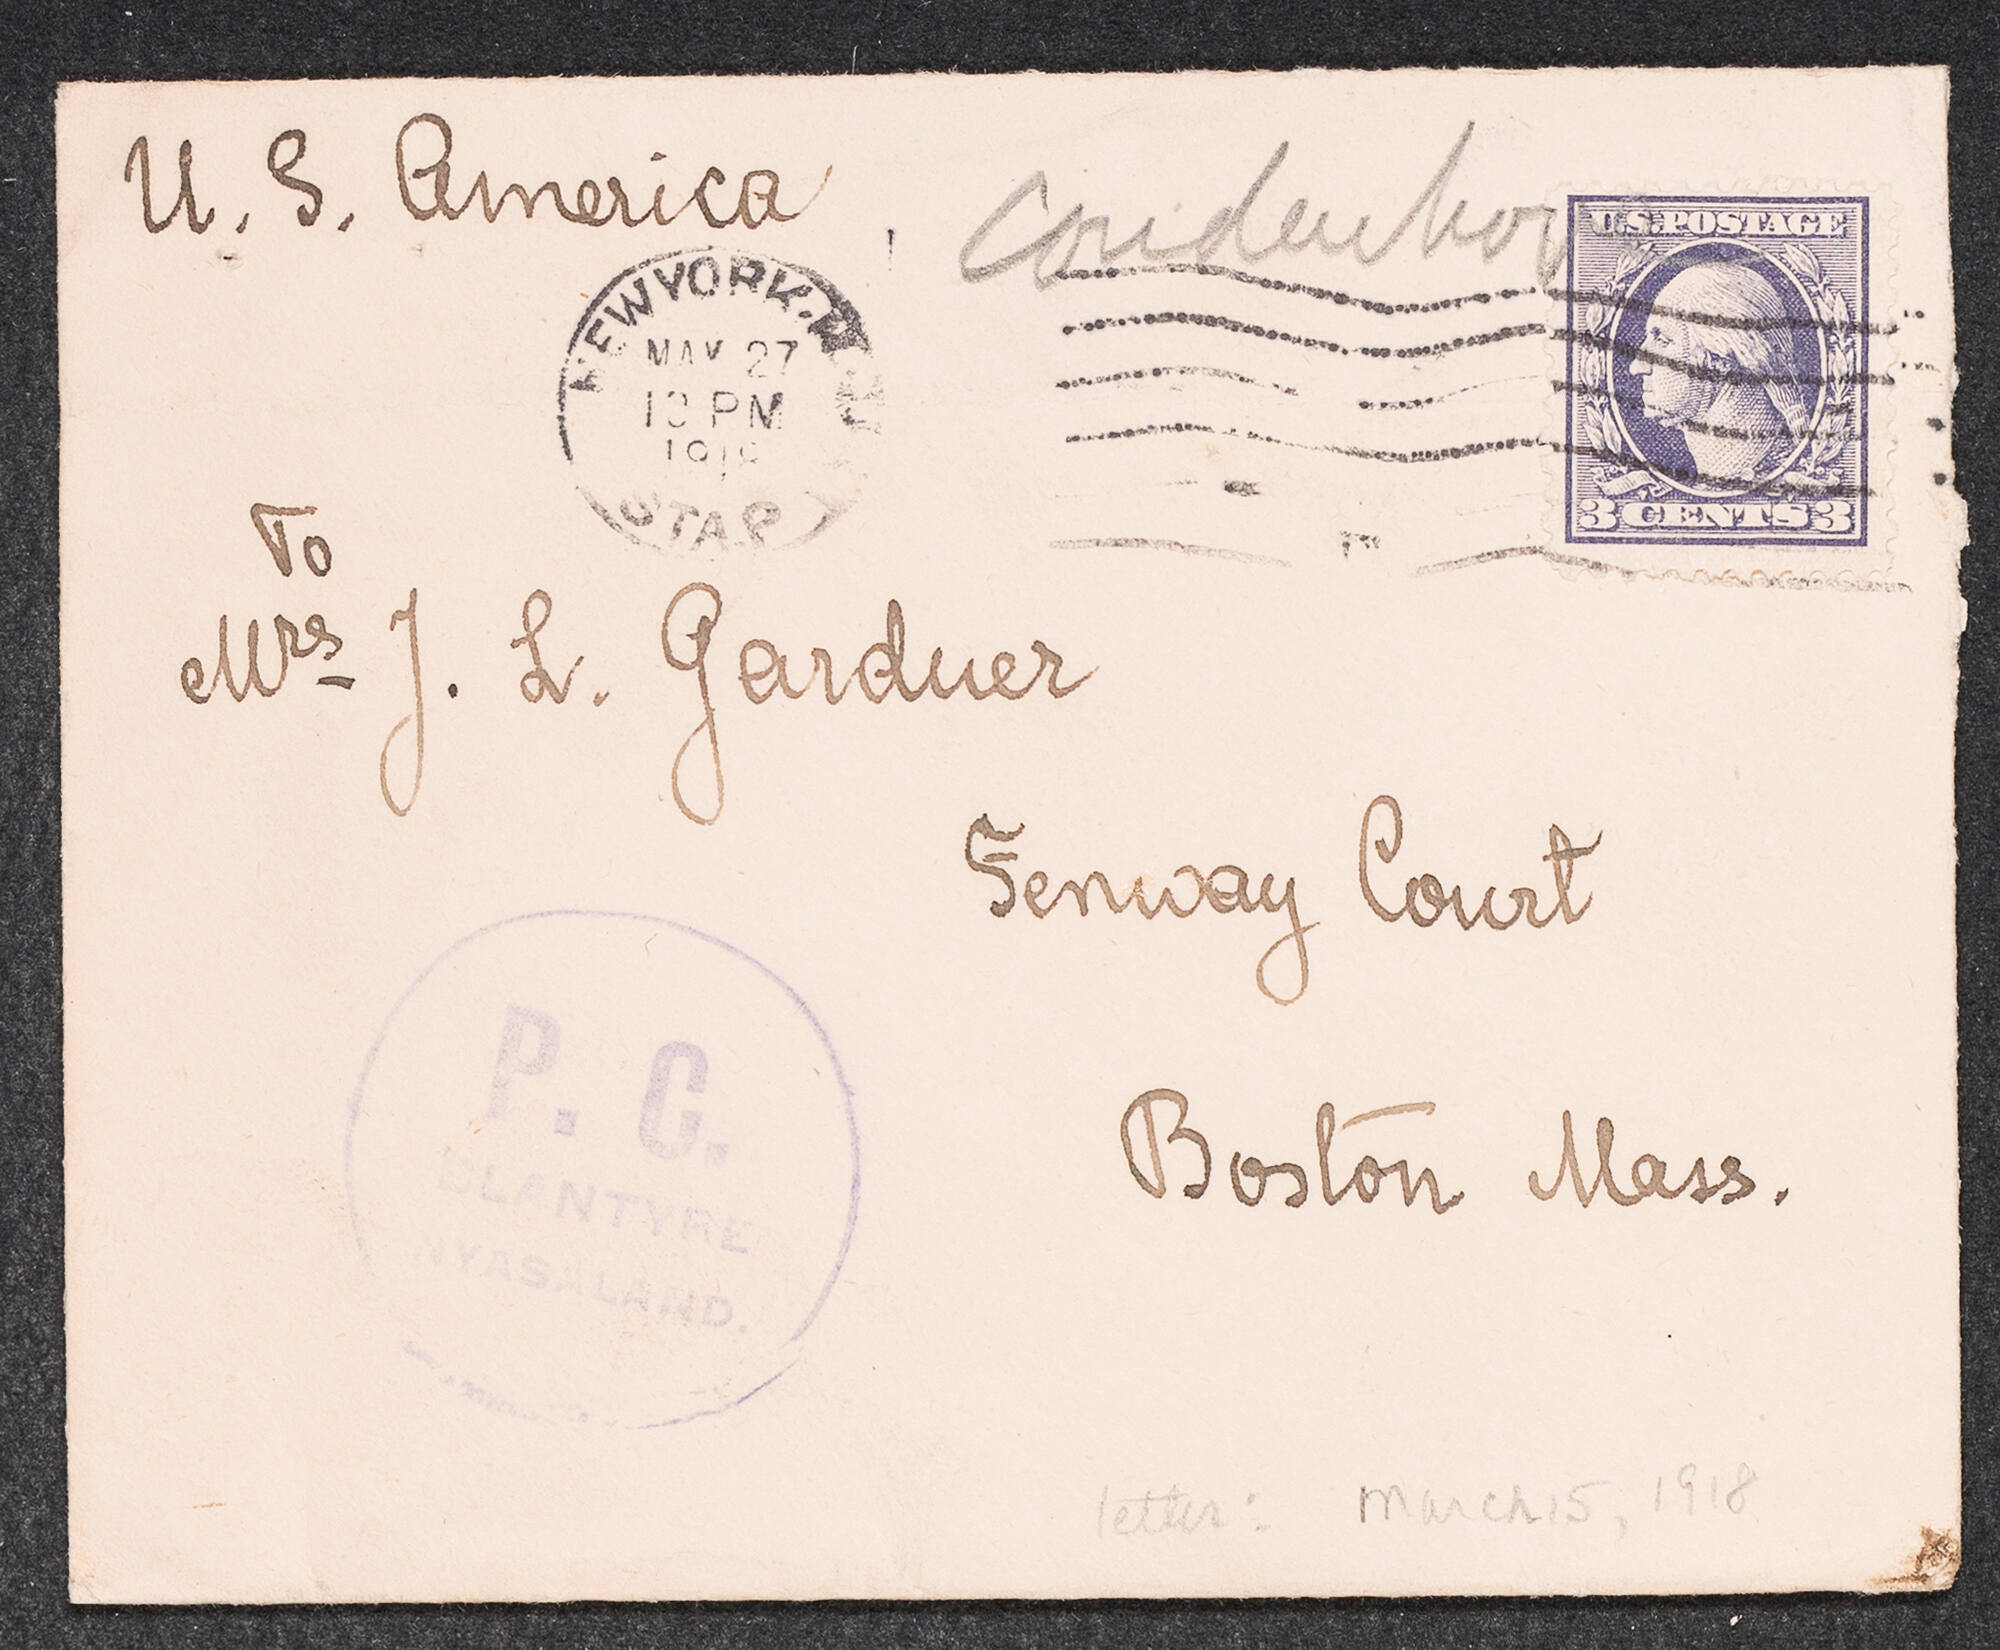 U. S. America
NEW YORK, N.Y.
MAY 27
PM
STA
U.S. POSTAGE
3 CENTS 3
To
Mrs J. L. Gardner
Fenway Court
Boston Mass.
P. C.
BLANTYRE
NYASALAND.
letter: March 15, 1918